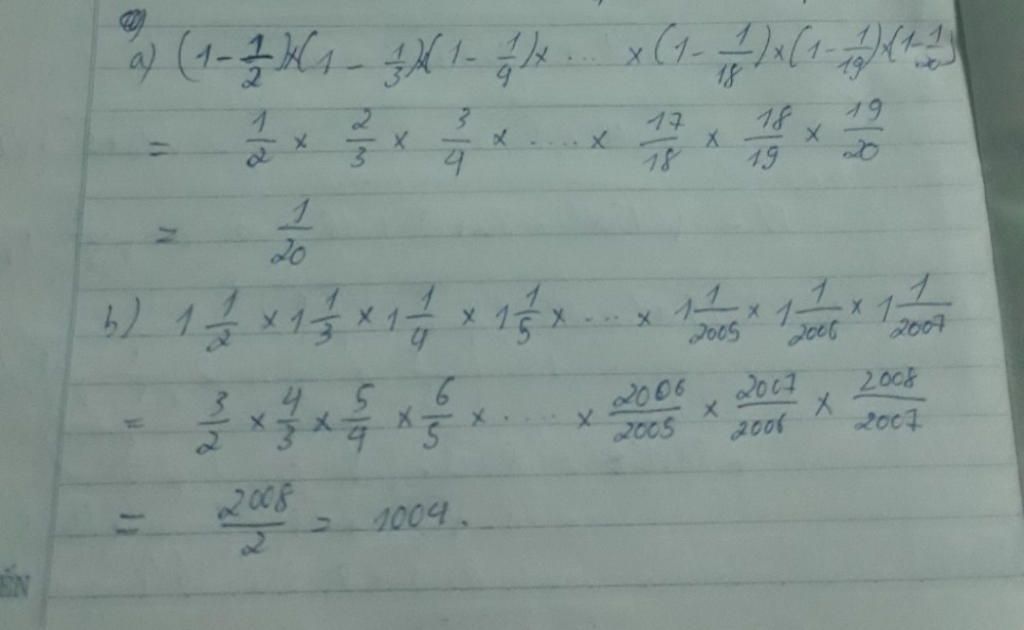 a) (1 - 1/2) × (1 - 1/3) × (1 - 1/4) × ... × (1 - 1/18) × (1 - 1/19) × (1 - 1/20)
= 1/2 × 2/3 × 3/4 × .... × 17/18 × 18/19 × 19/20
= 1/20
b) 1 1/2 × 1 1/3 × 1 1/4 × 1 1/5 × ... × 1 1/2005 × 1 1/2006 × 1 1/2007
= 3/2 × 4/3 × 5/4 × 6/5 × ..... × 2006/2005 × 2007/2006 × 2008/2007
= 2008/2 = 1004.